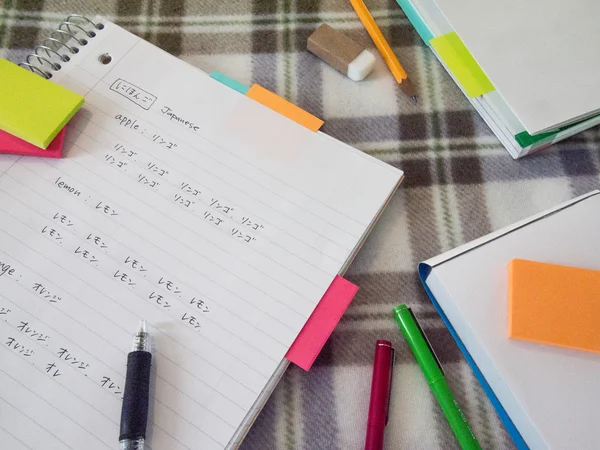 にほんご Japanese
apple : リンゴ
リンゴ リンゴ リンゴ リンゴ リンゴ
リンゴ リンゴ リンゴ リンゴ リンゴ
lemon : レモン
レモン レモン レモン レモン レモン
レモン レモン レモン レモン レモン
nge : オレンジ
オレンジ オレンジ オレン
オレンジ オレ